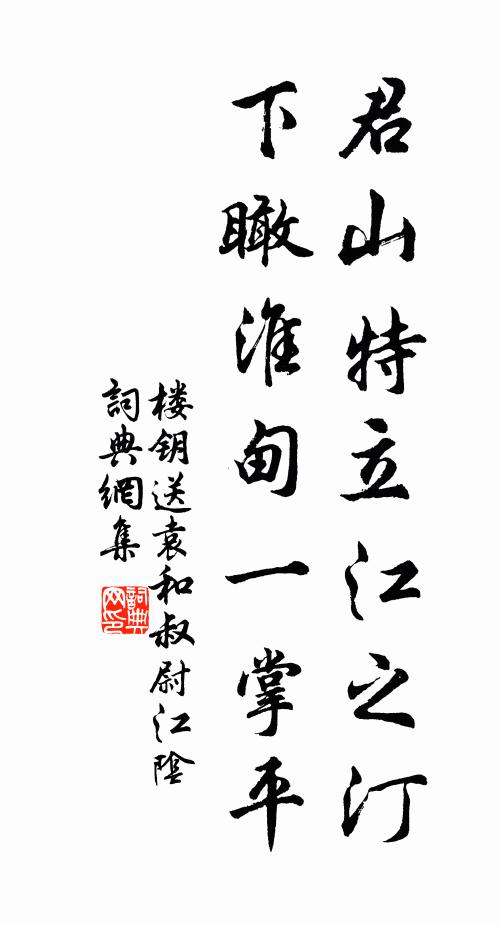 君山特立江之汀
下瞰淮甸一掌平
楼钥送袁和叔尉江陰
詞典網集
詞典网印